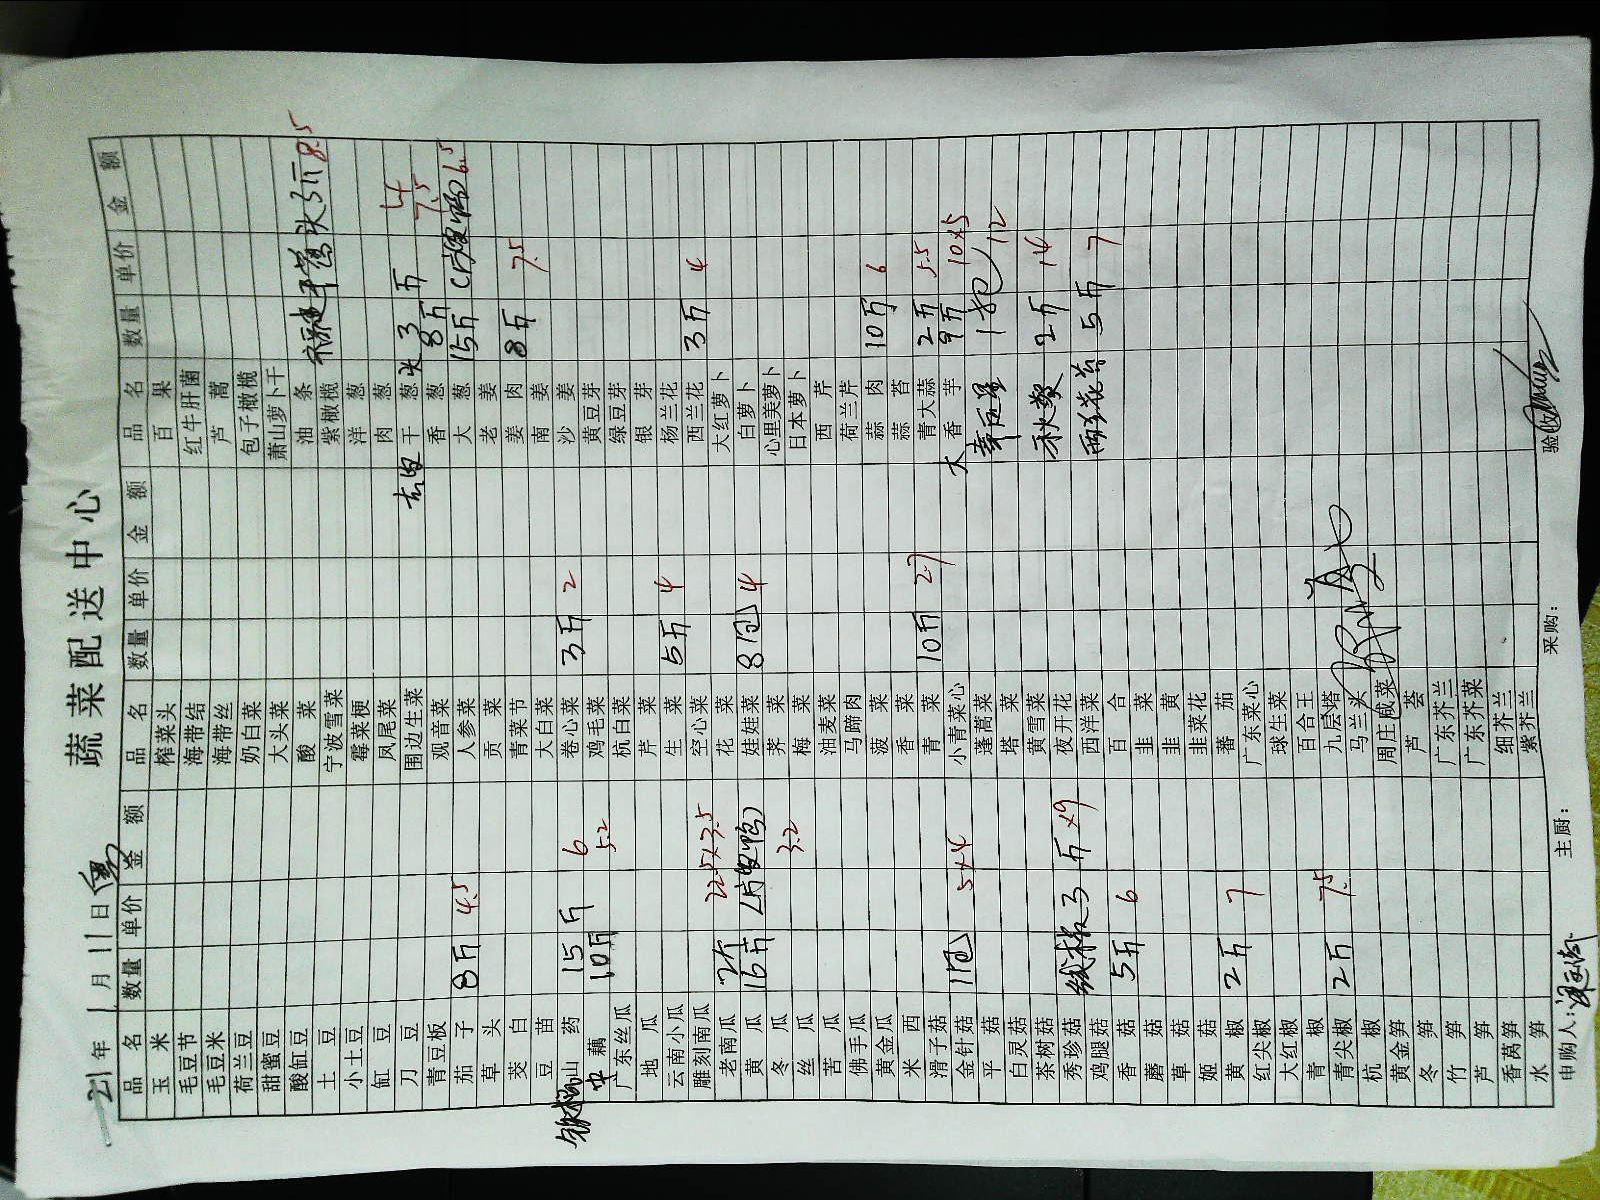 蔬菜配送中心
21年 1月11日
品名 数量 单价 金额 品名 数量 单价 金额 品名 数量 单价 金额
玉米 榨菜头 百果
毛豆节 海带结 红牛肝菌
毛豆米 海带丝 芦蒿
荷兰豆 奶白菜 包子橄榄
甜蜜豆 大头菜 萧山萝卜干
酸缸豆 酸菜 油条 福建芋艿头 3斤 8.5
土豆 宁波雪菜 紫橄榄
小土豆 霉菜梗 洋葱
缸豆 凤尾菜 肉葱
刀豆 围边生菜 去皮 干葱头 3斤 14
青豆板 观音菜 香葱 8斤 7.5
茄子 8斤 4.5 人参菜 大葱 15斤 (片皮鸭) 6.5
草头 贡菜 老姜
茭白 青菜节 姜肉 8斤 7.5
豆苗 大白菜 南姜
铁棍山药 15斤 6 卷心菜 3斤 2 沙姜
中藕 10斤 5.2 鸡毛菜 黄豆芽
广东丝瓜 杭白菜 绿豆芽
地瓜 芹菜 银芽
云南小瓜 生菜 5斤 4 杨兰花
雕刻南瓜 空心菜 西兰花 3斤 4
老南瓜 2个 22.5×3.5 花菜 大红萝卜
黄瓜 16斤 (片皮鸭) 娃娃菜 8包 4 白萝卜
冬瓜 3.2 荠菜 心里美萝卜
丝瓜 梅菜 日本萝卜
苦瓜 油麦菜 西芹
佛手瓜 马蹄肉 荷兰芹
黄金瓜 菠菜 蒜肉 10斤 6
米西 香菜 蒜苔
滑子菇 青菜 10斤 2.7 青大蒜 2斤 5.5
金针菇 1包 5×4 小青菜心 大香芋 9斤 10×5
平菇 蓬蒿菜 1包 12
白灵菇 塔菜
茶树菇 黄雪菜 秋葵 2斤 14
秀珍菇 线椒 3斤 ×9 夜开花
鸡腿菇 西洋菜 西兰花苔 5斤 7
香菇 5斤 6 百合
蘑菇 韭菜
草菇 韭黄
姬菇 韭菜花
黄椒 2斤 7 蕃茄
红尖椒 广东菜心
大红椒 球生菜
青椒 百合王
青尖椒 2斤 7.5 九层塔
杭椒 马兰头
黄金笋 周庄咸菜
冬笋 芦荟
竹笋 广东芥兰
芦笋 广东芥菜
香莴笋 细芥兰
水笋 紫芥兰
申购人: 主厨: 采购: 验收